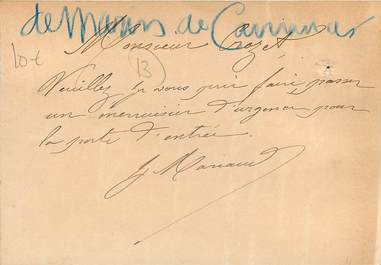 de Mours de
Monsieur Crozet
10 €
13
Veuillez je vous prie faire passer
un menuisier d'urgence pour
la porte d'entrée.